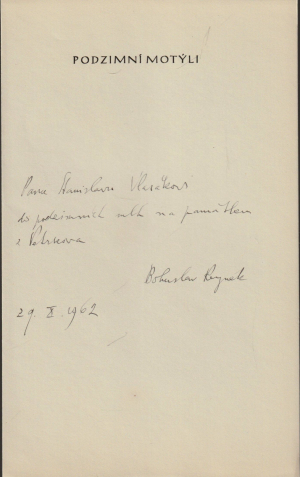 PODZIMNÍ MOTÝLI
Panu Stanislavu Vlasákovi
do podzimních mlh na památku
z Petrkova
Bohuslav Reynek
29. X. 1962